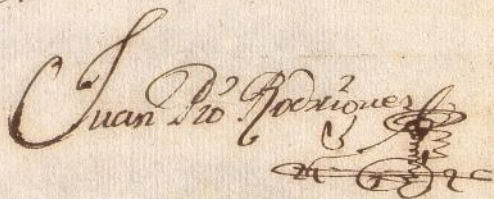 Juan Pº Rodriguez